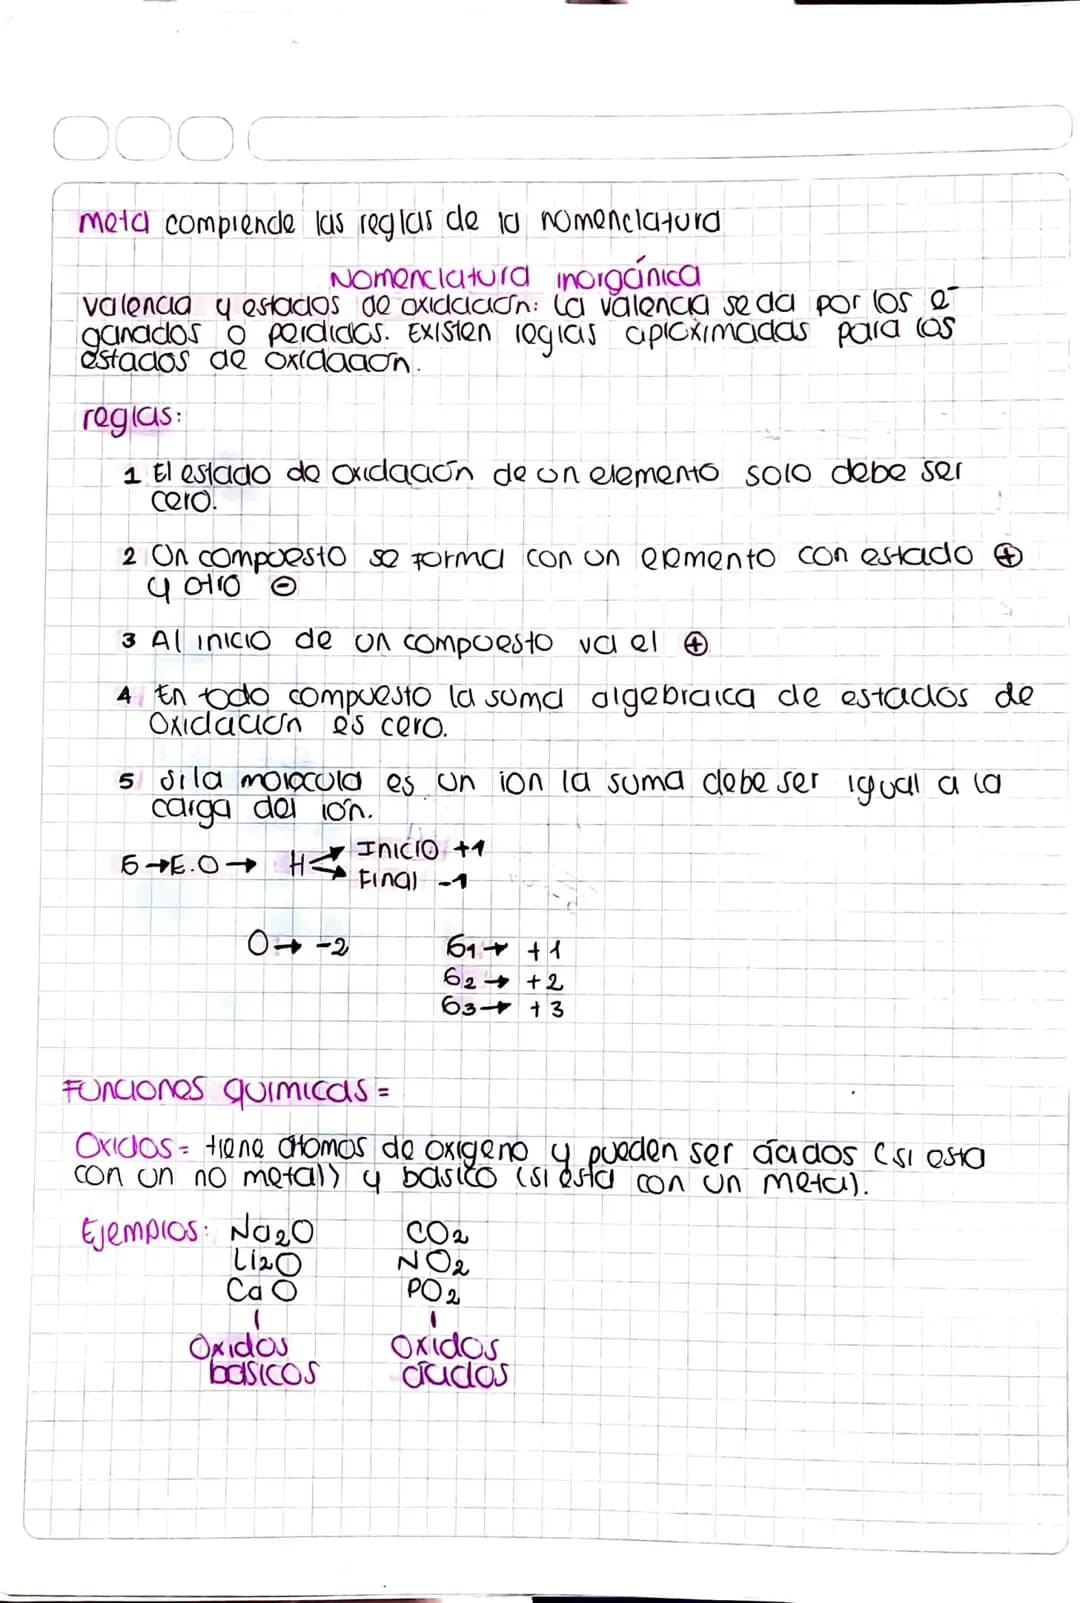 meta comprende las reglas de la nomenclatura
Nomenclatura inorgánica
valencia y estados de oxidación: La valencia se da por los e⁻
ganados o perdidos. Existen reglas aproximadas para los
estados de oxidación.
reglas:
1 El estado de oxidación de un elemento solo debe ser
cero.
2 Un compuesto se forma con un elemento con estado ⊕
y otro ⊖
3 Al inicio de un compuesto va el ⊕
4 En todo compuesto la suma algebraica de estados de
Oxidación es cero.
5 Si la molécula es un ion la suma debe ser igual a la
carga del ión.
6→E.O→ H Inicio +1
Final -1
O→ -2 G1→ +1
G2→ +2
G3→ +3
Funciones químicas=
Oxidos= tiene átomos de oxígeno y pueden ser ácidos (si esta
con un no metal)) y básico (si ésta con un metal).
Ejemplos: Na2O CO2
Li2O NO2
CaO PO2
Oxidos Oxidos
basicos ácidos